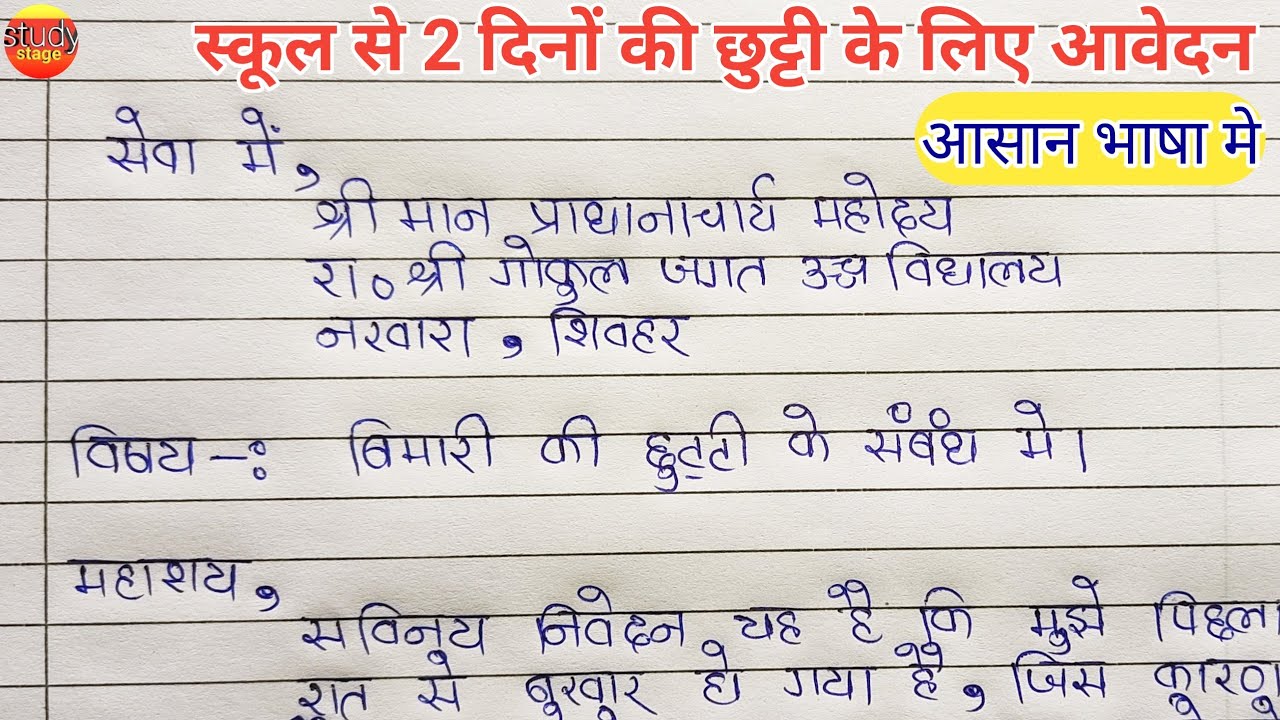 study
stage
स्कूल से 2 दिनों की छुट्टी के लिए आवेदन
आसान भाषा मे
सेवा में,
श्रीमान प्राधानाचार्य महोदय
रा० श्री गोकुल जगत उच्च विधालय
नरवारा, शिवहर
विषय -: बिमारी की छुट्टी के संबंध मे।
महाशय,
सविनय निवेदन यह है कि मुझे पिछला
रात से बुखार हो गया है, जिस कारण